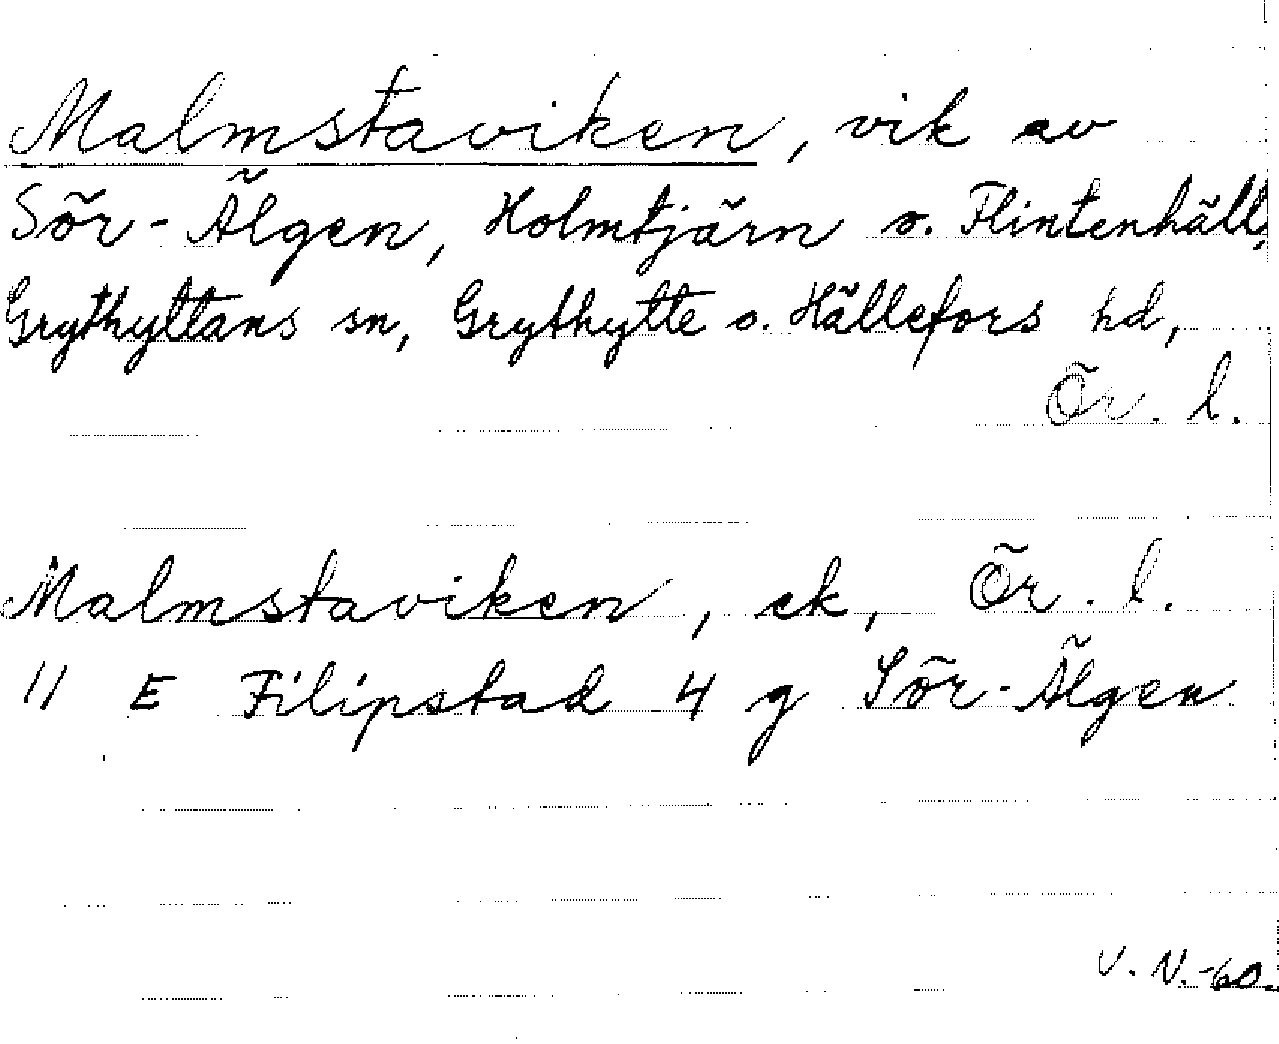 Malmstaviken, vik av
Sör-Älgen, Holmtjärn o. Flintenhäll,
Grythyttans sn, Grythytte o. Hällefors hd,
Ör. l.
Malmstaviken, ek, Ör. l.
11 E Filipstad 4 g Sör-Älgen
V. N.-60.